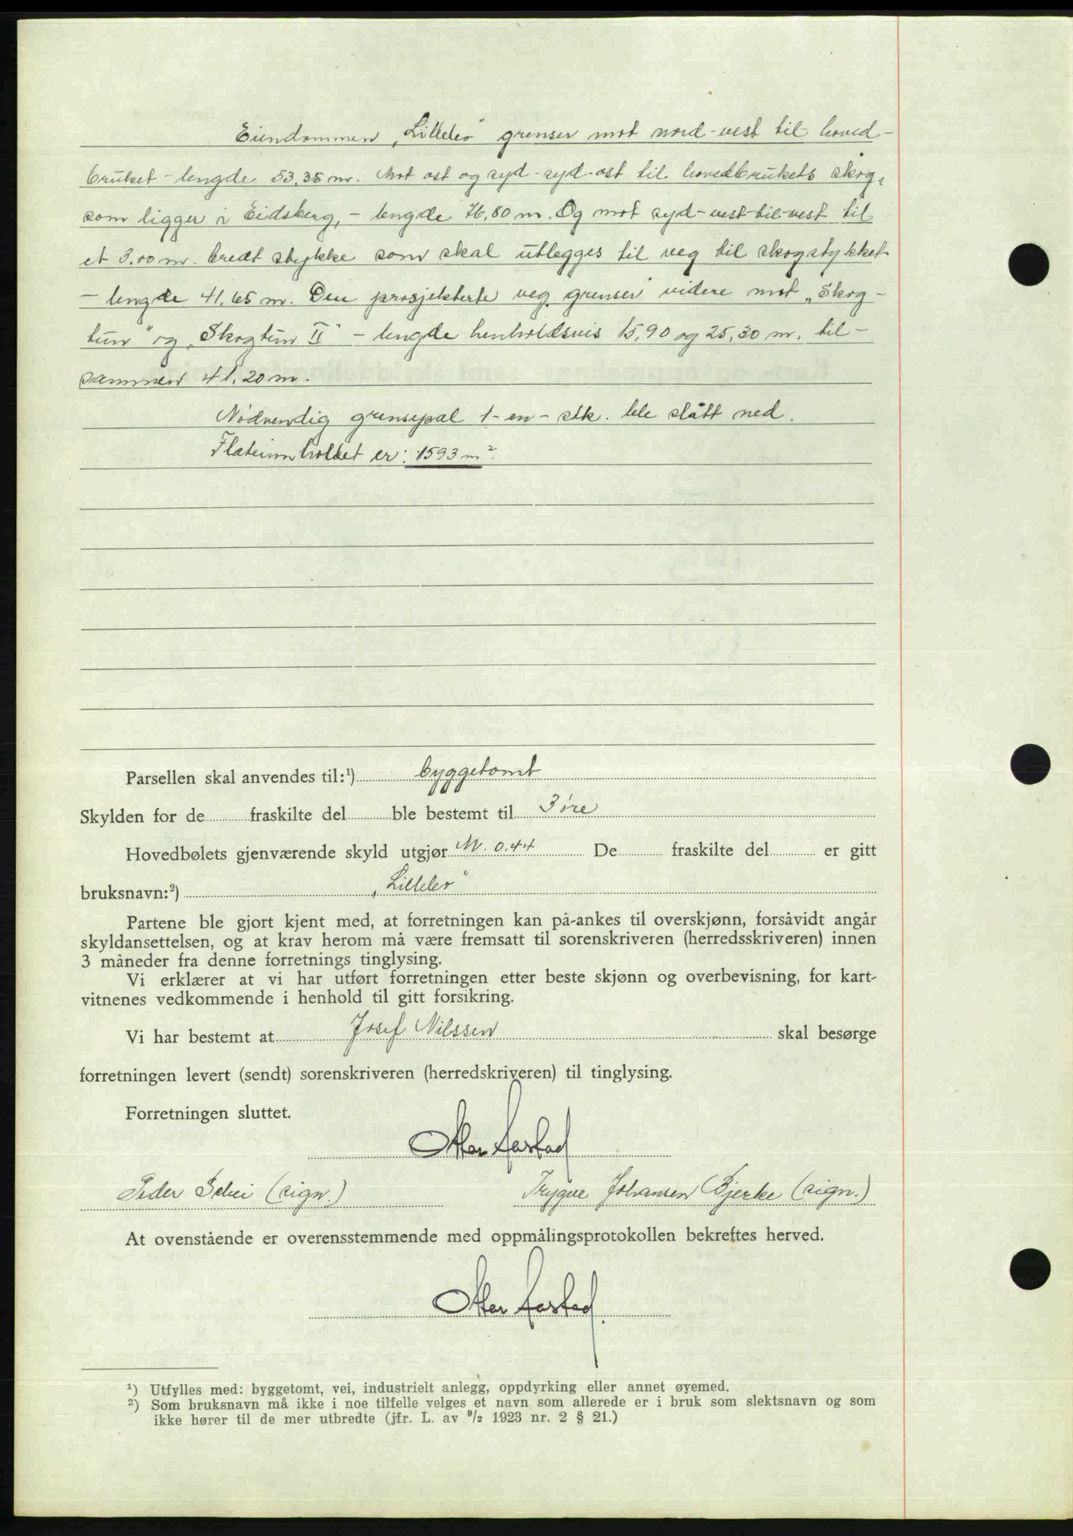 Eiendommen „Lilleler" grenser mot nord-vest til hoved-
bruket - lengde 53,35 m. Mot øst og syd-syd-øst til hovedbrukets skog,
som ligger i Eidsberg, - lengde 76,80 m. Og mot syd-vest-til-vest til
et 3.00 m. bredt stykke som skal utlegges til veg til skogstykket
- lengde 41,65 m. Den prosjekterte veg grenser videre mot „Skog-
tun" og „Skogtun II" - lengde henholdsvis 15,90 og 25,30 m. til-
sammen 41,20 m.
Nødvendig grensepæl 1-en- stk. ble slått ned.
Flateinnholdet er: 1593 m².
Parsellen skal anvendes til:¹) byggetomt
Skylden for de fraskilte del ble bestemt til 3 øre
Hovedbølets gjenværende skyld utgjør M. 0.44 De fraskilte del er gitt
bruksnavn:²) „Lilleler"
Partene ble gjort kjent med, at forretningen kan på-ankes til overskjønn, forsåvidt angår
skyldansettelsen, og at krav herom må være fremsatt til sorenskriveren (herredsskriveren) innen
3 måneder fra denne forretnings tinglysing.
Vi erklærer at vi har utført forretningen etter beste skjønn og overbevisning, for kart-
vitnenes vedkommende i henhold til gitt forsikring.
Vi har bestemt at Josef Nilssen skal besørge
forretningen levert (sendt) sorenskriveren (herredskriveren) til tinglysing.
Forretningen sluttet.
Aarstad
Peder (sign.) Trygve Johansen Bjerke (sign.)
At ovenstående er overensstemmende med oppmålingsprotokollen bekreftes herved.
Aarstad.
¹) Utfylles med: byggetomt, vei, industrielt anlegg, oppdyrking eller annet øyemed.
²) Som bruksnavn må ikke i noe tilfelle velges et navn som allerede er i bruk som slektsnavn og som
ikke hører til de mer utbredte (jfr. L. av ⁹/₂ 1923 nr. 2 § 21.)